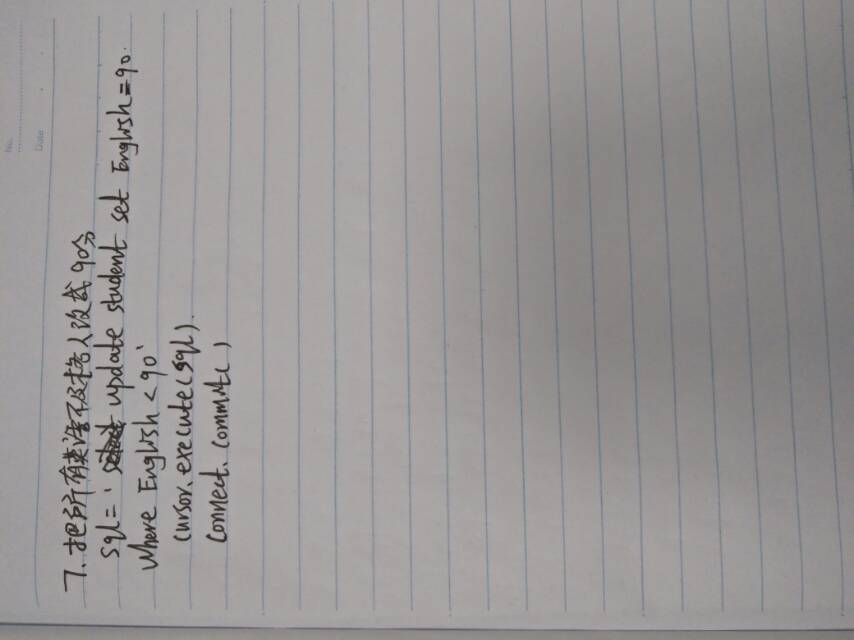 No.
Date
7. 把所有英语不及格人改成90分
sql = ' update student set English = 90
where English < 90'
cursor.execute(sql).
connect.commit()